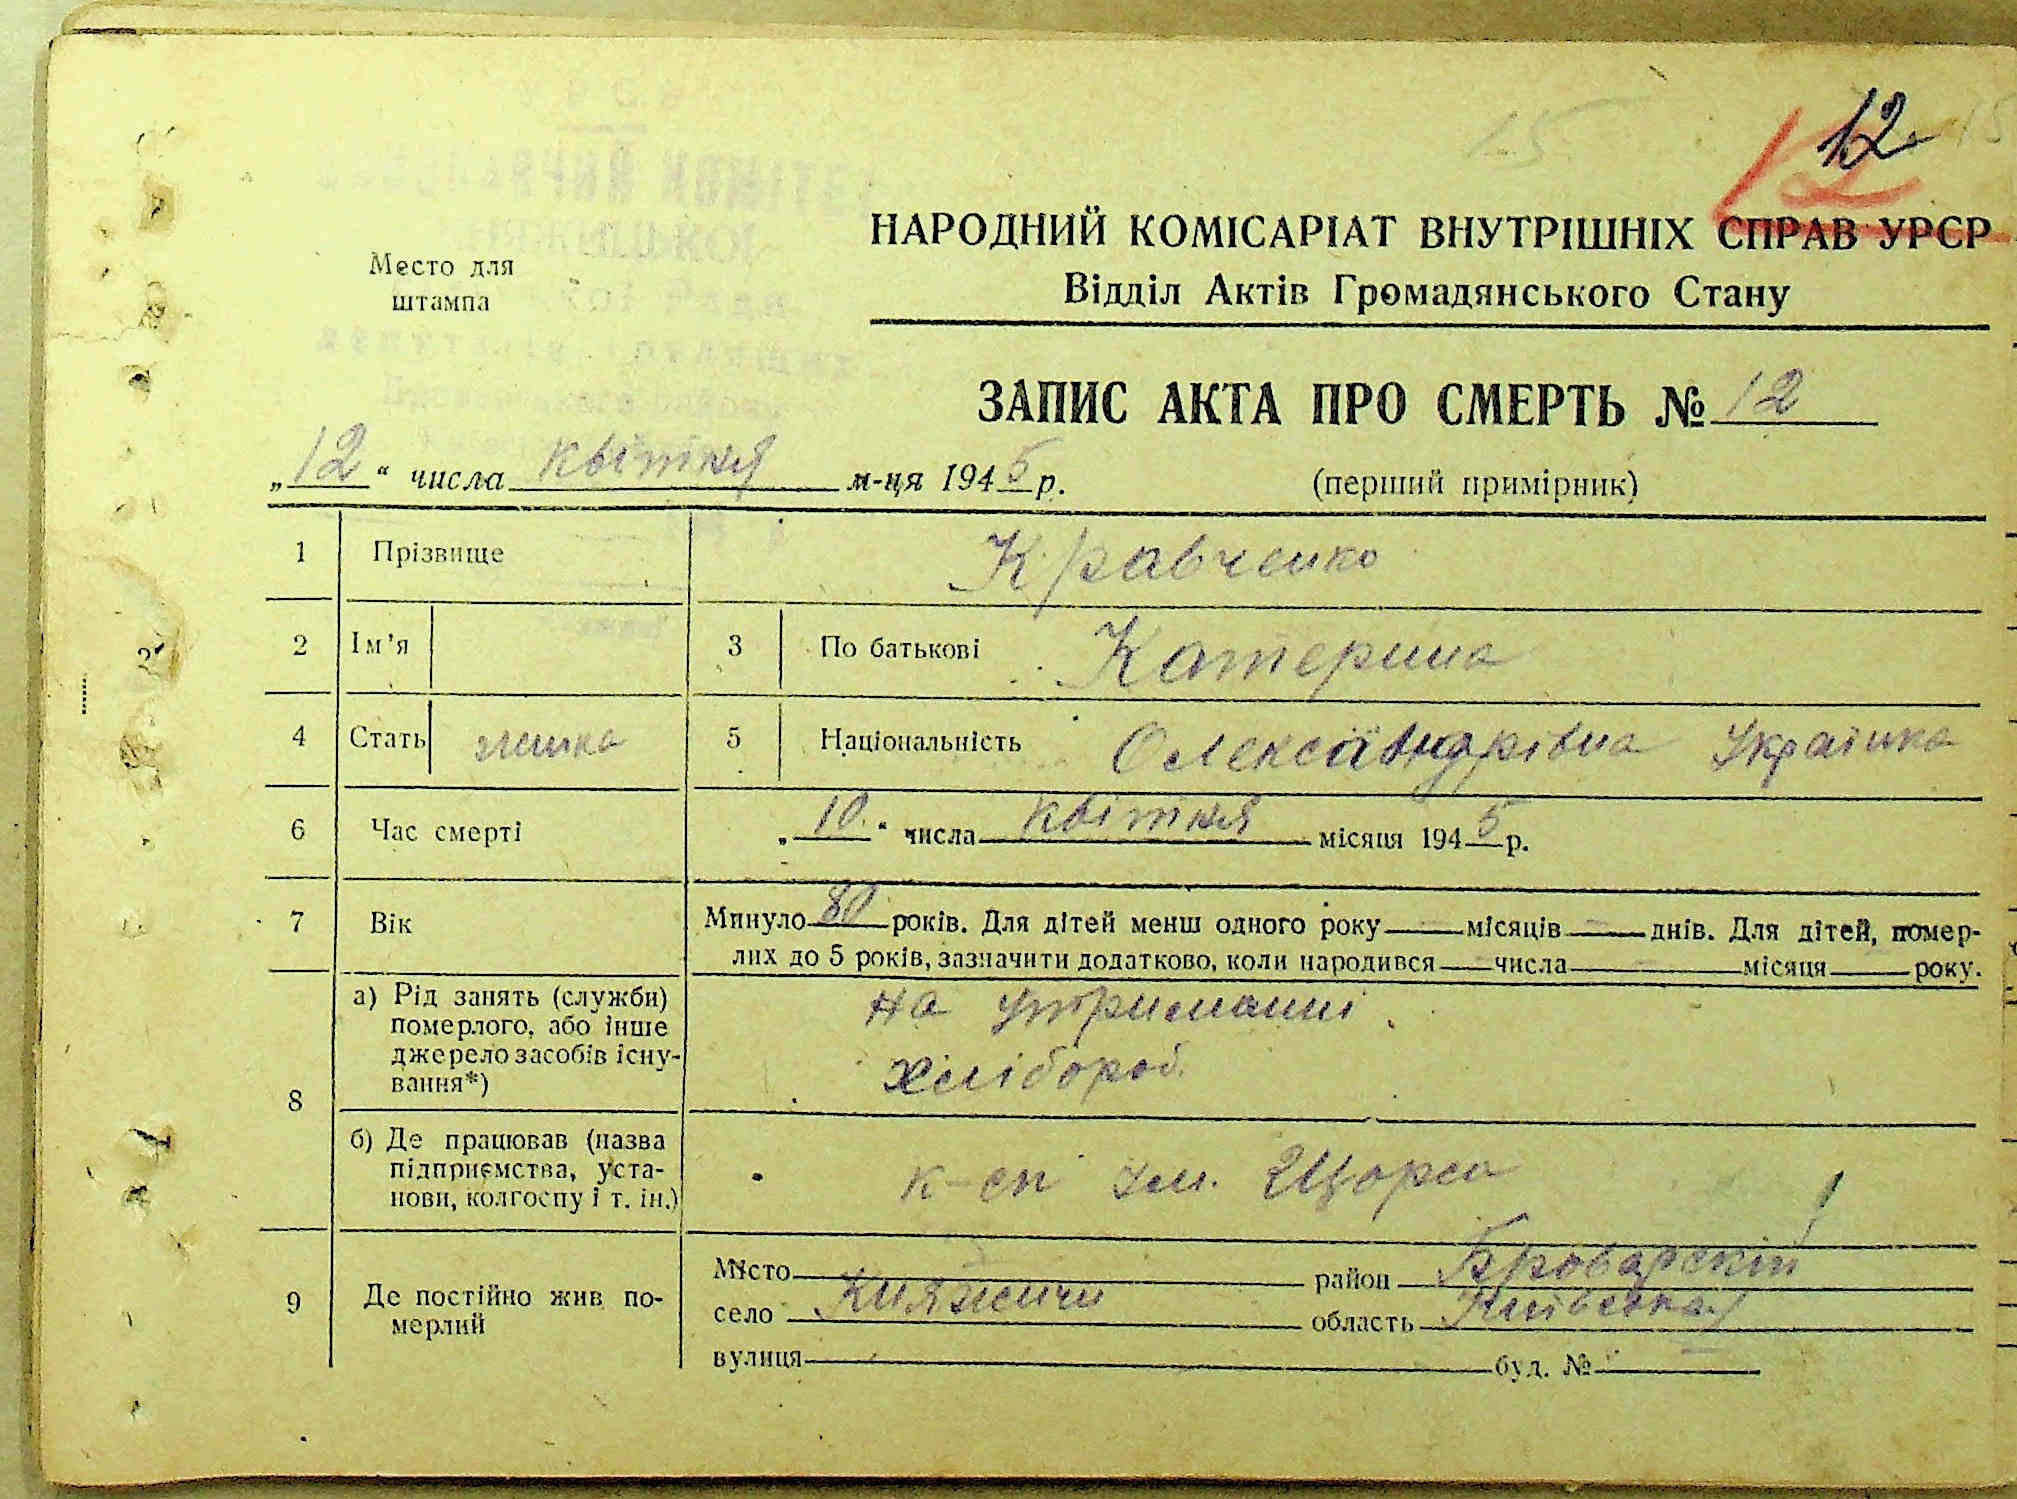 12.
15
12
15
НАРОДНИЙ КОМІСАРІАТ ВНУТРІШНІХ СПРАВ УРСР
Відділ Актів Громадянського Стану
Место для
штампа
ЗАПИС АКТА ПРО СМЕРТЬ № 12
„12“ числа квітня м-ця 1945 р.
(перший примірник)
1 Прізвище Кравченко
2 Ім'я 3 По батькові Катерина
4 Стать жінка 5 Національність Олександрівна Українка
6 Час смерті „10“ числа квітня місяця 1945 р.
7 Вік Минуло 80 років. Для дітей менш одного року — місяців — днів. Для дітей, помер-
лих до 5 років, зазначити додатково, коли народився — числа — місяця — року.
8 а) Рід занять (служби)
померлого, або інше
джерело засобів існу-
вання*)
на утриманні
хлібороб.
б) Де працював (назва
підприємства, уста-
нови, колгоспу і т. ін.)
к-сп ім. Щорса
9 Де постійно жив по-
мерлий
Місто район Броварский
село Княжичи область Київська
вулиця буд. №